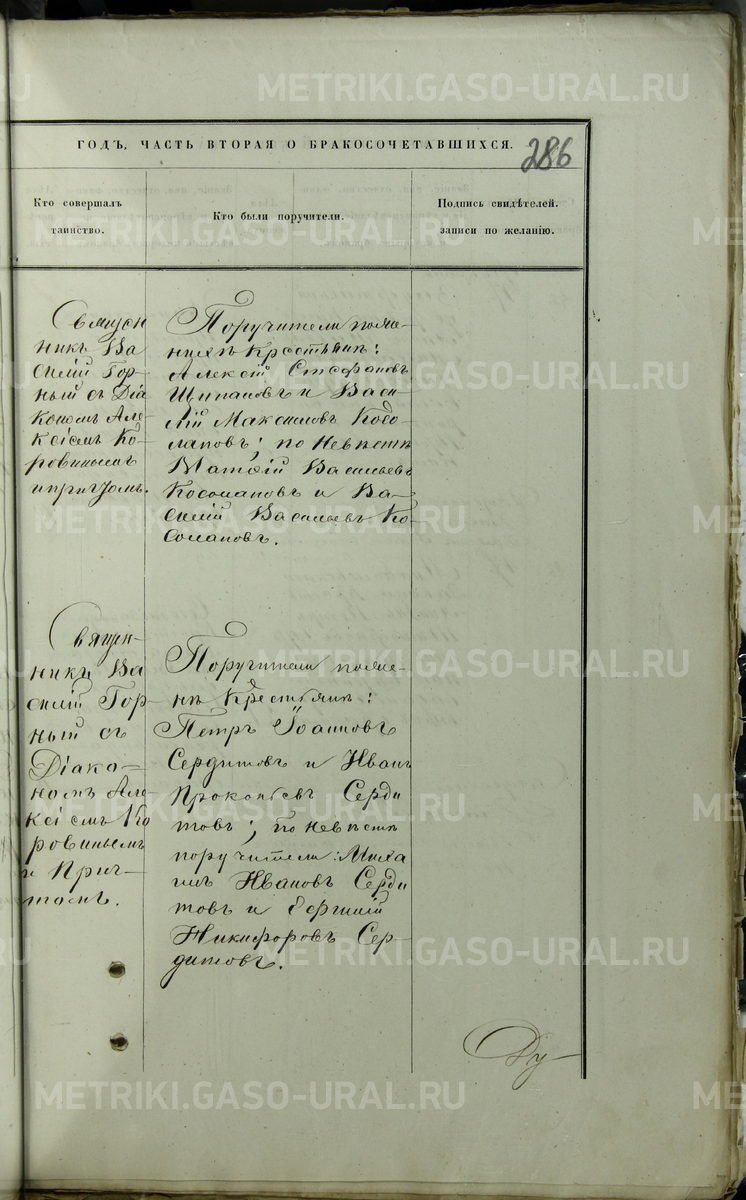 METRIKI.GASO-URAL.RU
ГОДЪ, ЧАСТЬ ВТОРАЯ О БРАКОСОЧЕТАВШИХСЯ.
286
Кто совершалъ
таинство.
Кто были поручители.
Подпись свидѣтелей.
записи по желанію.
Священ
никъ Ва
силій Гор
ный съ Діа
кономъ Але
ксіемъ Ко-
ровинымъ
и причтомъ.
Поручители по же-
нихѣ крестьяне:
Алексѣй Стефановъ
Щипановъ и Васи
лій Максимовъ Косо
лаповъ; по невѣстѣ
Матѳій Васильевъ
Косолаповъ и Ва-
силій Васильевъ Ко-
солаповъ.
Священ-
никъ Ва
силій Гор-
ный съ
Діако-
номъ Але
ксіемъ Ко
ровинымъ
и Прич-
томъ.
Поручители по же-
нихѣ Крестьяне:
Петръ Іоанновъ
Сердитовъ и Иванъ
Прокопьевъ Серди
товъ; по невѣстѣ
поручители: Миха
илъ Ивановъ Серди
товъ и
Никифоровъ Сер-
дитовъ.
Ду-